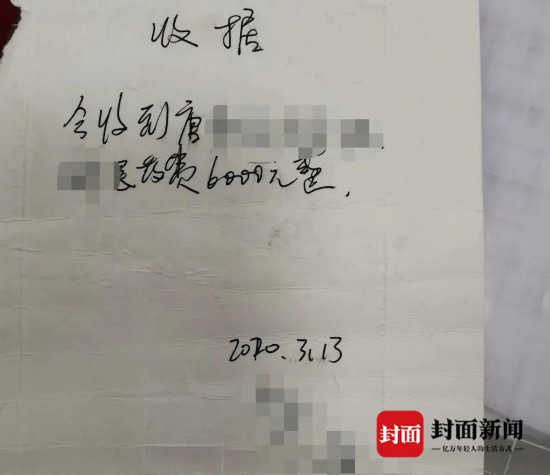 收据
今收到唐
费6000元整.
2020.3.13
封面 封面新闻
亿万年轻人的生活方式